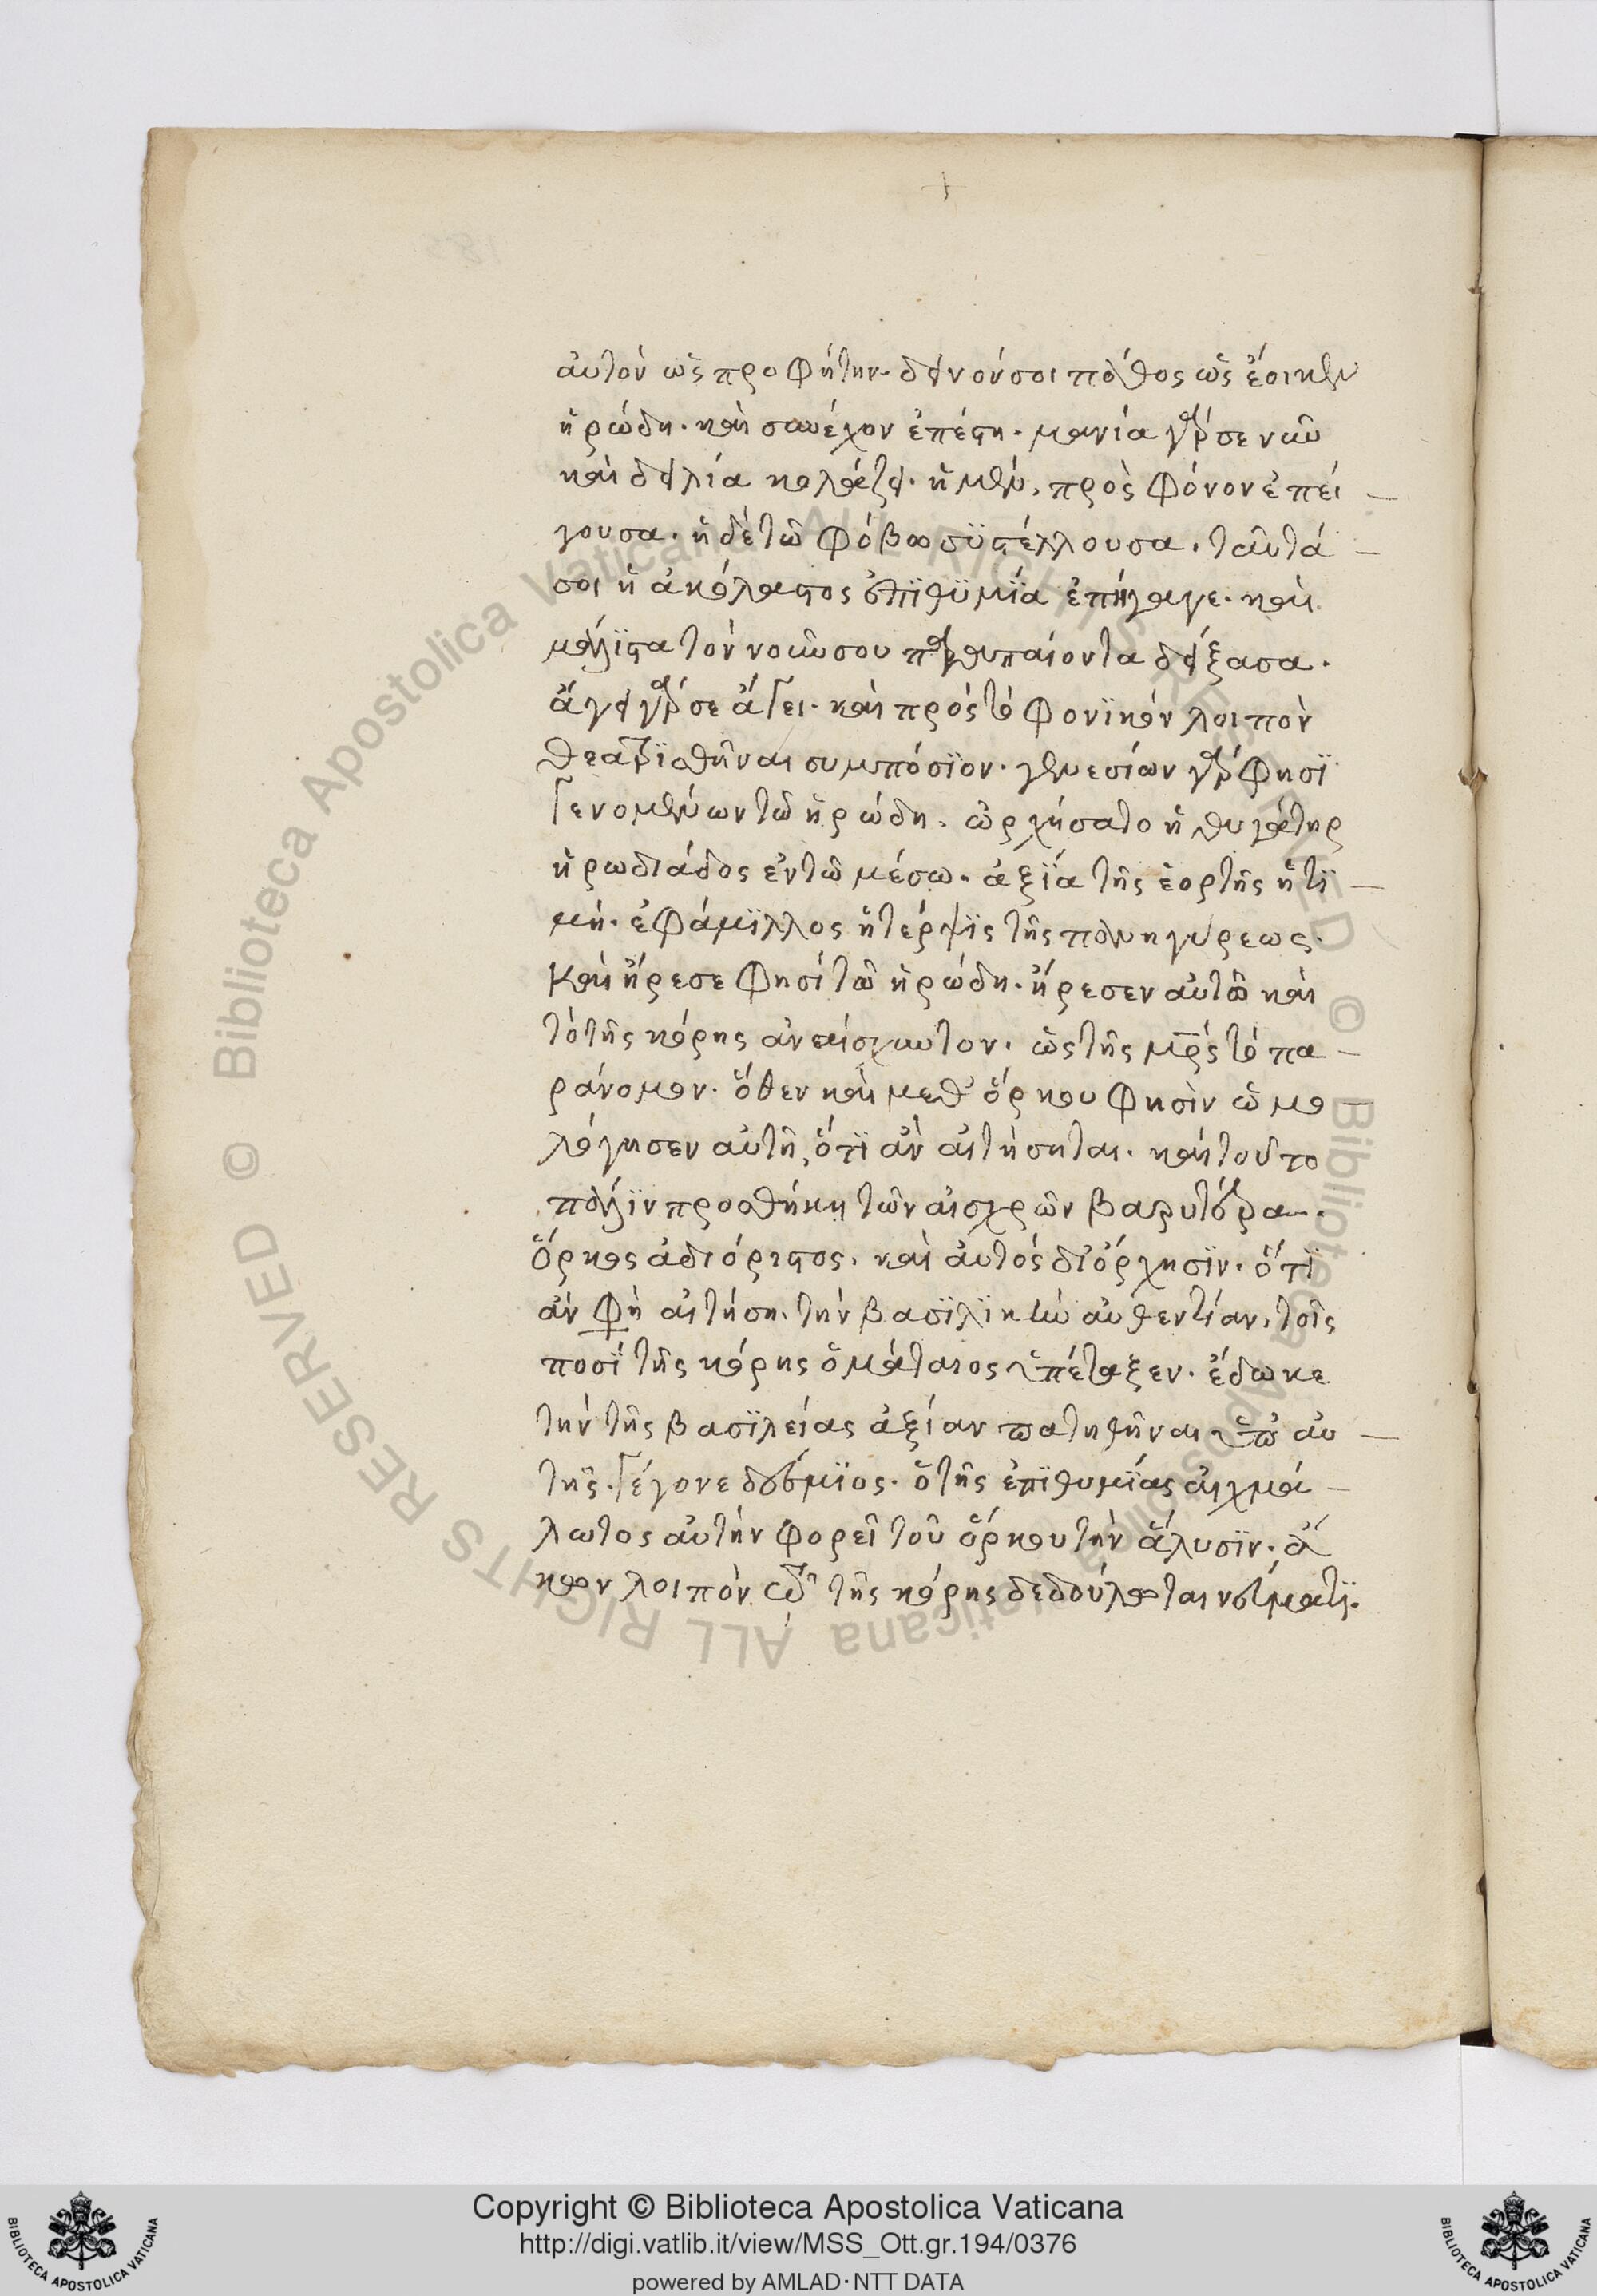 αὐτὸν ὡς προφήτην. δεινόν σοι πάθος ὡς ἔοικεν
ἡρώδη. καὶ συνέχον ἐπέστη. μανία γάρ σε νῦν
καὶ δειλία κολάζει. ἡ μὲν, πρὸς φόνον ἐπεί
γουσα. ἡ δὲ τῶ φόβω συστέλλουσα. ταῦτά
σοι ἡ ἀκόλαστος ἐπϊθϋμΐα ἐπήγαγε. καὶ
μάλϊστα τὸν νοῦν σου παραπαίοντα δείξασα.
ἄγει γάρ σε ἄγει. καὶ πρὸς τὸ φονϊκὸν λοιπὸν
θεατρϊσθῆναι συμπόσϊον. γενεσίων γάρ φησϊ
γενομένων τῶ ἡρώδη. ὠρχήσατο ἡ θυγάτηρ
ἡρωδιάδος ἐν τῶ μέσω. ἀξΐα τῆς ἑορτῆς ἡ τϊ
μή. ἐφάμϊλλος ἡ τέρψϊς τῆς πανηγύρεως.
καὶ ἤρεσε φησὶ τῶ ἡρώδη. ἤρεσεν αὐτῶ καὶ
τὸ τῆς κόρης ἀναίσχυντον. ὡς τῆς μρς τὸ πα
ράνομον. ὅθεν καὶ μεθ' ὅρκου φησὶν ὡμο
λόγησεν αὐτῆ, ὅτϊ ἂν αἰτήσηται. καὶ τοῦτο
πάλϊν προσθήκη τῶν αἰσχρῶν βαρυτέρα.
ὅρκος ἀδιόριστος. καὶ αὐτὸς δι' ὄρχησϊν. ὅτϊ
ἂν φὴ αἰτήση. τὴν βασϊλϊκὴν αὐθεντίαν, τοῖς
ποσῒ τῆς κόρης ὁ μάταιος ὑπέταξεν. ἔδωκε
τὴν τῆς βασϊλείας ἀξίαν πατηθῆναι ὑπ' αὐ
τῆς. γέγονε δέσμϊος. ὁ τῆς ἐπϊθυμΐας αἰχμά
λωτος αὐτὴν φορεῖ τοῦ ὅρκου τὴν ἅλυσϊν. ἄ
κων λοιπὸν τῆς κόρης δεδούλωται νεύματϊ.
Copyright © Biblioteca Apostolica Vaticana
http://digi.vatlib.it/view/MSS_Ott.gr.194/0376
powered by AMLAD·NTT DATA